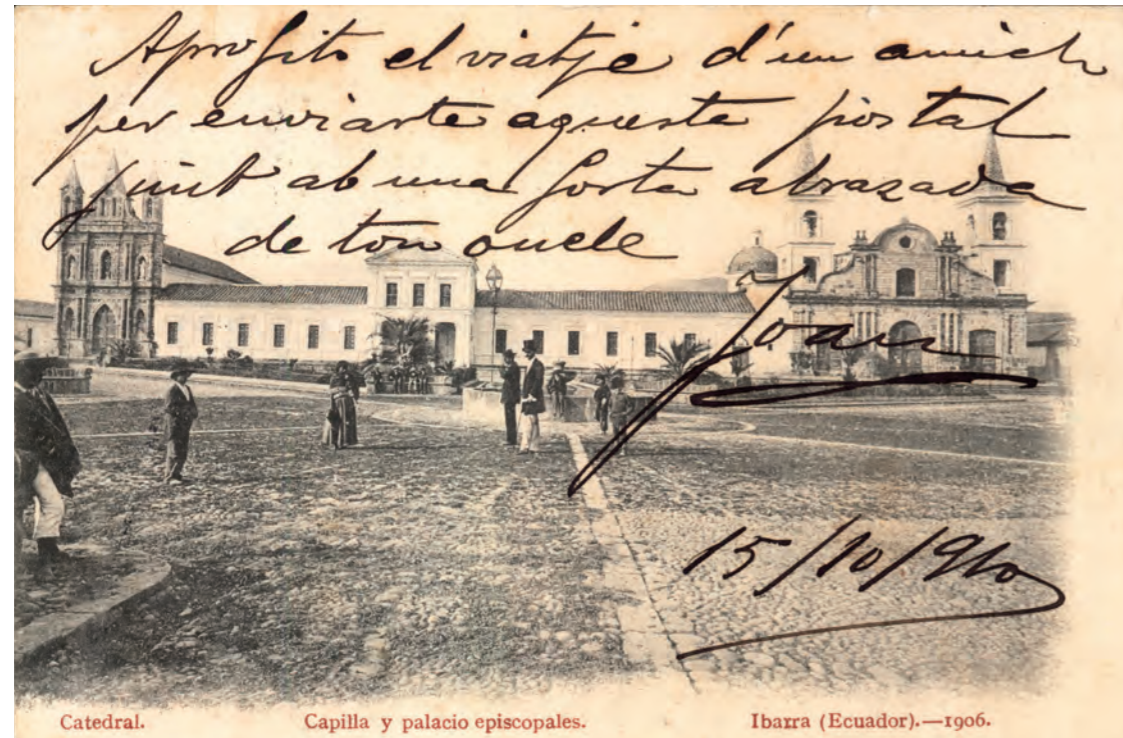 Aprofito el viatje d'un amich
per enviarte aquesta postal
junt ab una forta abrazada
de ton oncle
Joan
15/10/910
Catedral. Capilla y palacio episcopales. Ibarra (Ecuador).—1906.